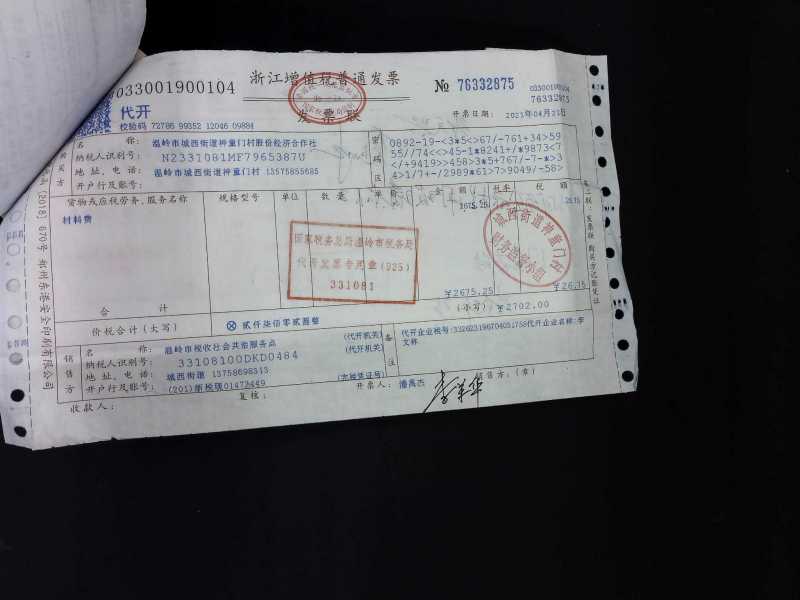 033001900104
浙江增值税普通发票
№ 76332875
033001900104
76332875
代开
发票联
校验码 72786 99352 12046 09884
开票日期: 2021年04月21日
购买方
名 称: 温岭市城西街道神童门村股份经济合作社
纳税人识别号: N2331081MF7965387U
地址、电话: 温岭市城西街道神童门村 13575855685
开户行及账号:
密码区
0892-19-<3*5<>67/-761+34>59
55//74<<>45-1*8241+/*9873<7
</+9419>>458>3*5+767/-7-*>3
4>1/7+-/2989*61>7>9049/-58>
货物或应税劳务、服务名称
规格型号
单位
数量
单价
金额
税率
税额
材料费
2675.25
26.75
国家税务总局温岭市税务局
代开发票专用章(925)
331081
城西街道神童门村
合 计
¥2675.25
¥26.75
价税合计(大写)
ⓧ 贰仟柒佰零贰圆整
(小写) ¥2702.00
销售方
名 称: 温岭市税收社会共治服务点
(代开机关)
纳税人识别号: 33108100DKD0484
(代开机关)
地址、电话: 城西街道 13758698343
开户行及账号: (201)浙税现01472449
(完税凭证号)
备注
代开企业税号:332623196704051758代开企业名称:李
文标
收款人:
复核:
开票人: 潘禹杰
销售方:(章)
第二联:发票联 购买方记账凭证
(2018)670号 郑州东港安全印刷有限公司